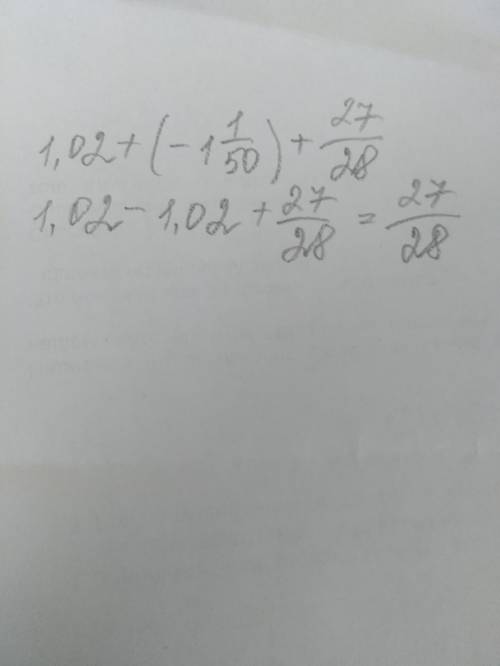 1,02 + (- 1 1/50) + 27/28
1,02 - 1,02 + 27/28 = 27/28